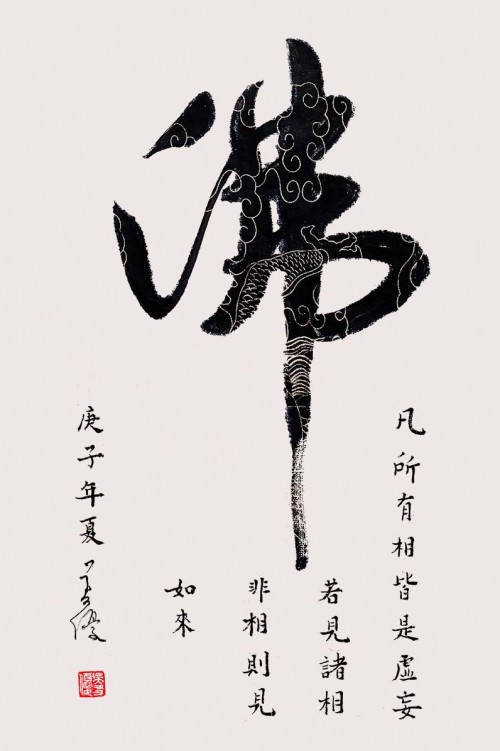 佛
凡所有相皆是虛妄
若見諸相
非相則見
如來
庚子年夏